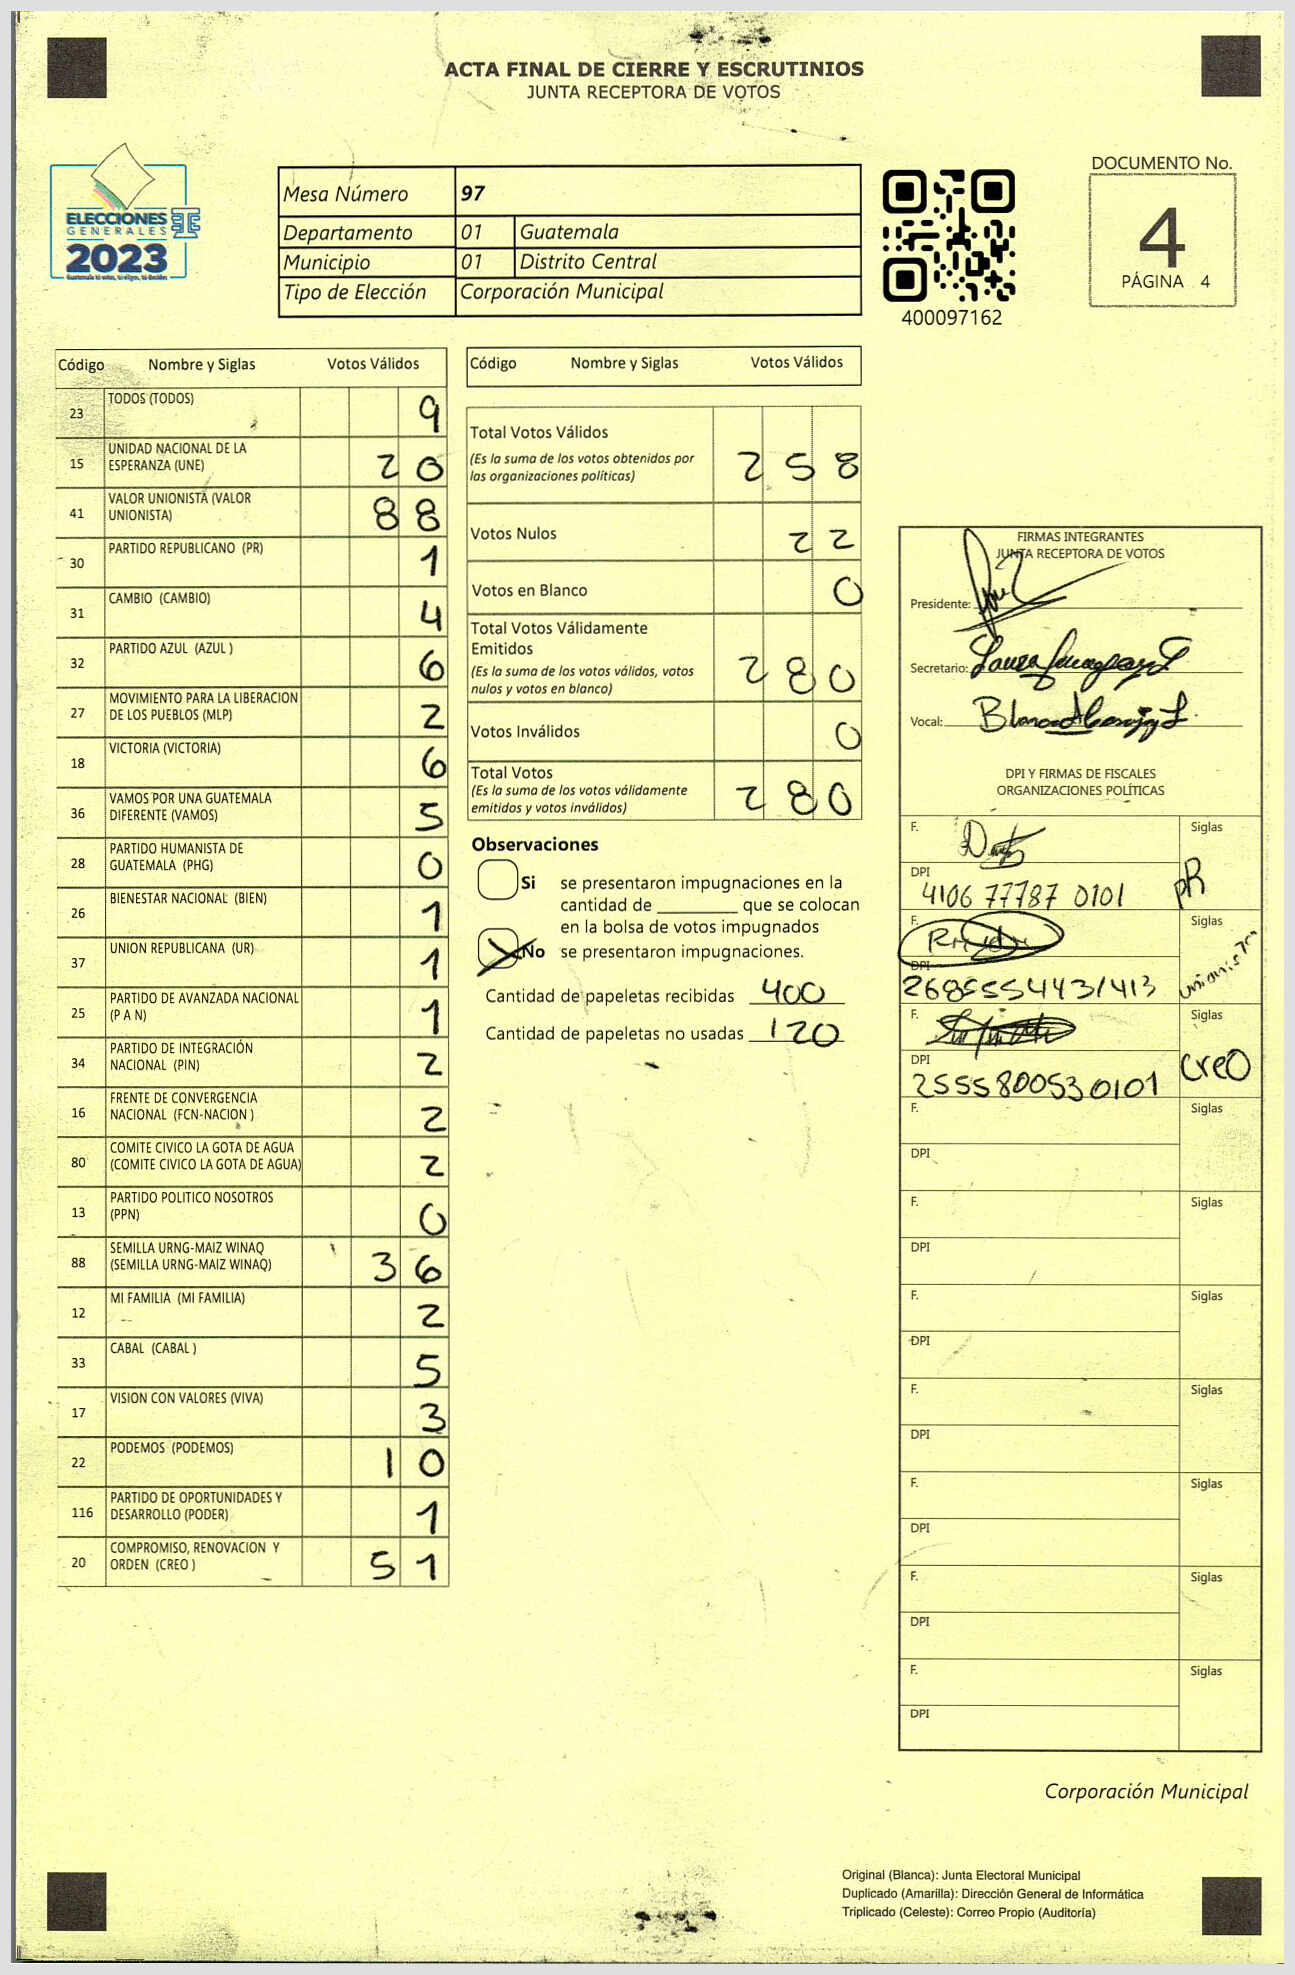 ACTA FINAL DE CIERRE Y ESCRUTINIOS
JUNTA RECEPTORA DE VOTOS
ELECCIONES
GENERALES
2023
Mesa Número 97
Departamento 01 Guatemala
Municipio 01 Distrito Central
Tipo de Elección Corporación Municipal
400097162
DOCUMENTO No.
4
PÁGINA 4
Código Nombre y Siglas Votos Válidos
23 TODOS (TODOS) 9
15 UNIDAD NACIONAL DE LA
ESPERANZA (UNE) 20
41 VALOR UNIONISTA (VALOR
UNIONISTA) 88
30 PARTIDO REPUBLICANO (PR) 1
31 CAMBIO (CAMBIO) 4
32 PARTIDO AZUL (AZUL ) 6
27 MOVIMIENTO PARA LA LIBERACION
DE LOS PUEBLOS (MLP) 2
18 VICTORIA (VICTORIA) 6
36 VAMOS POR UNA GUATEMALA
DIFERENTE (VAMOS) 5
28 PARTIDO HUMANISTA DE
GUATEMALA (PHG) 0
26 BIENESTAR NACIONAL (BIEN) 1
37 UNION REPUBLICANA (UR) 1
25 PARTIDO DE AVANZADA NACIONAL
(P A N) 1
34 PARTIDO DE INTEGRACIÓN
NACIONAL (PIN) 2
16 FRENTE DE CONVERGENCIA
NACIONAL (FCN-NACION ) 2
80 COMITE CIVICO LA GOTA DE AGUA
(COMITE CIVICO LA GOTA DE AGUA) 2
13 PARTIDO POLITICO NOSOTROS
(PPN) 0
88 SEMILLA URNG-MAIZ WINAQ
(SEMILLA URNG-MAIZ WINAQ) 36
12 MI FAMILIA (MI FAMILIA) 2
33 CABAL (CABAL ) 5
17 VISION CON VALORES (VIVA) 3
22 PODEMOS (PODEMOS) 10
116 PARTIDO DE OPORTUNIDADES Y
DESARROLLO (PODER) 1
20 COMPROMISO, RENOVACION Y
ORDEN (CREO ) 51
Código Nombre y Siglas Votos Válidos
Total Votos Válidos
(Es la suma de los votos obtenidos por
las organizaciones políticas) 258
Votos Nulos 22
Votos en Blanco 0
Total Votos Válidamente
Emitidos
(Es la suma de los votos válidos, votos
nulos y votos en blanco) 280
Votos Inválidos 0
Total Votos
(Es la suma de los votos válidamente
emitidos y votos inválidos) 280
Observaciones
Si se presentaron impugnaciones en la
cantidad de ________ que se colocan
en la bolsa de votos impugnados
No se presentaron impugnaciones.
Cantidad de papeletas recibidas 400
Cantidad de papeletas no usadas 120
FIRMAS INTEGRANTES
JUNTA RECEPTORA DE VOTOS
Presidente:
Secretario:
Vocal:
DPI Y FIRMAS DE FISCALES
ORGANIZACIONES POLÍTICAS
F. Siglas
DPI PR
4106 77787 0101
F. Siglas
DPI unionista
268555443/413
F. Siglas
DPI CreO
2555800530101
F. Siglas
DPI
F. Siglas
DPI
F. Siglas
DPI
F. Siglas
DPI
F. Siglas
DPI
F. Siglas
DPI
F. Siglas
DPI
Corporación Municipal
Original (Blanca): Junta Electoral Municipal
Duplicado (Amarilla): Dirección General de Informática
Triplicado (Celeste): Correo Propio (Auditoría)